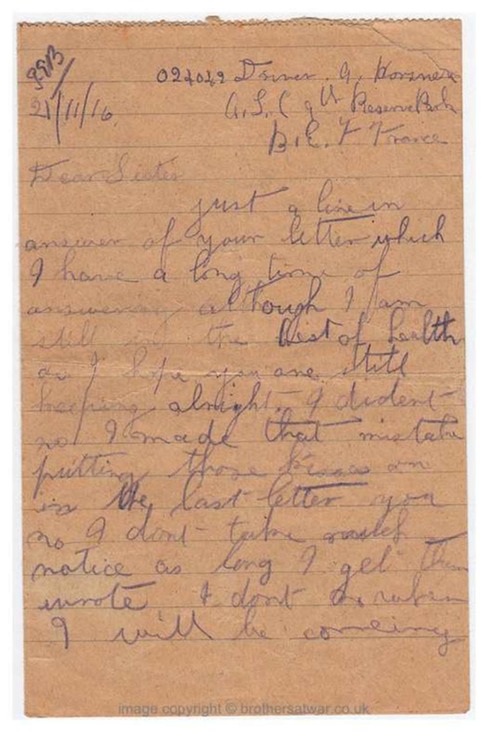 21/11/16
024049 Driver. A.
A.S.C 9th Reserve Park
B.E.F France
Dear Sister
just a line in
answer of your letter which
I have a long time of
answering although I am
still in the best of health
as I hope you are still
keeping alright. I dident
no I made that mistake
putting those kisses on
in the last letter you
no I dont take much
notice as long I get them
wrote I dont no when
I will be comeing
image copyright © brothersatwar.co.uk